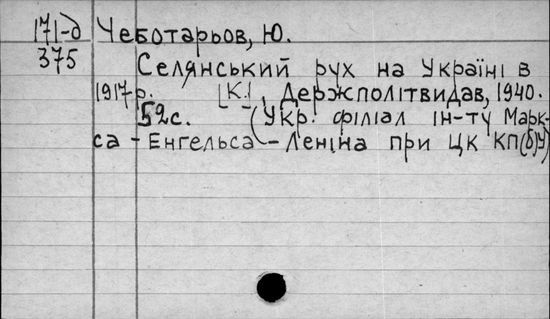 171-д Чеботарьов, Ю.
375 Селянський рух на Україні в
1917 р. [К.], Держполітвидав, 1940.
52 с. (Укр. філіал ін-ту Марк-
са - Енгельса - Леніна при ЦК КП(б)У)